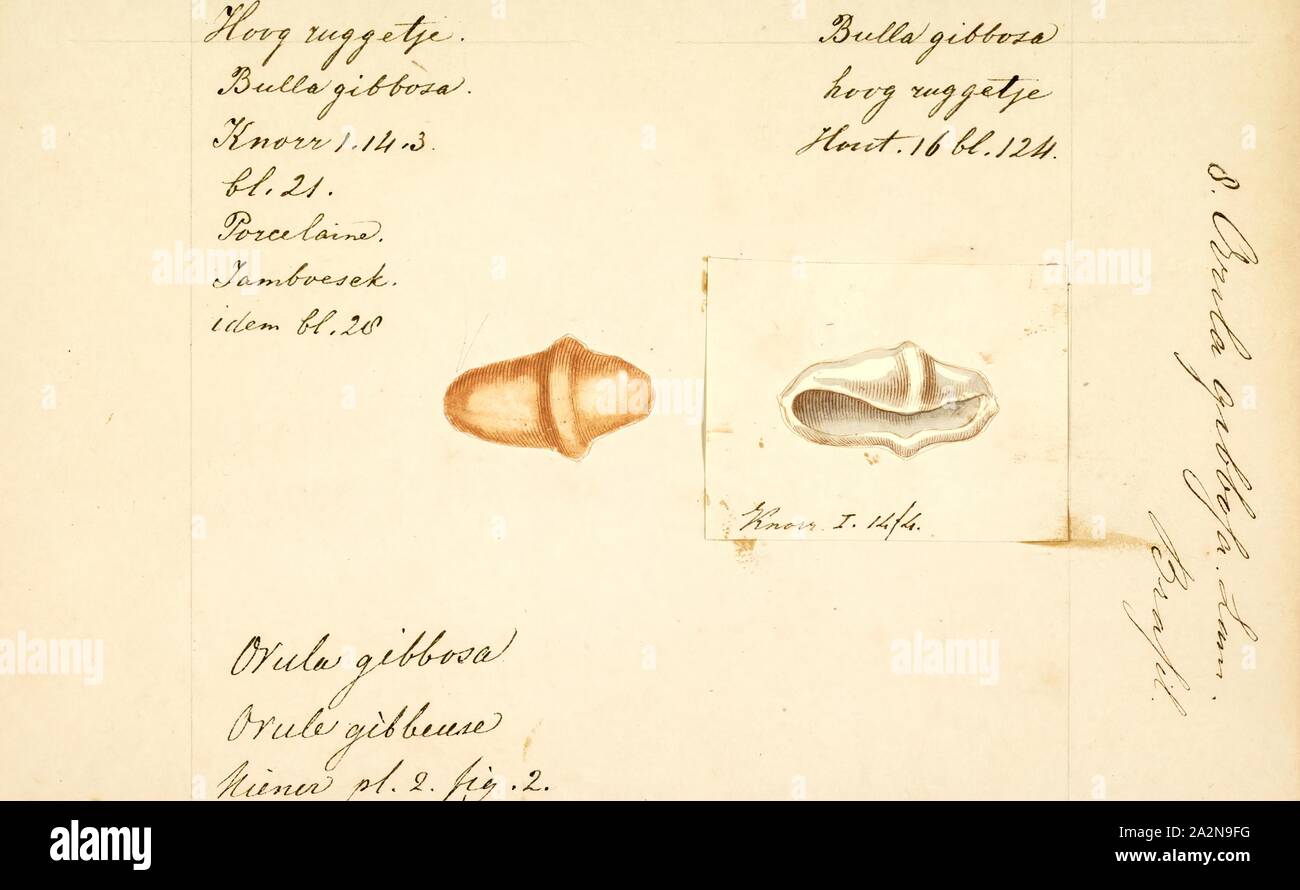 Hoog ruggetje.
Bulla gibbosa.
Knorr 1.14.3.
bl. 21.
Porcelaine.
Jamboesek.
idem bl. 28
Bulla gibbosa
hoog ruggetje
Hout. 16 bl. 124.
Knorr. I. 14/4.
8. Ovula gibbosa. Lam.
Brasil.
Ovula gibbosa
Ovule gibbeuse
Kiener pl. 2. fig. 2.
alamy
alamy
Image ID: A2N9FG
www.alamy.com